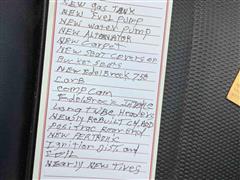 NEW gas TANK
NEW Fuel pump
NEW water pump
NEW ALTERNATOR
NEW Carpet
NEW Seat Covers on
Bucket Seats
NEW Edelbrock 750
Carb
Comp Cam
Edelbrock INTAKE
Long TUBE Headers
Newly Rebuilt
Positrac Rear End
NEW PERTRONIX
Ignition Dist and
Coil
Nearly New Tires